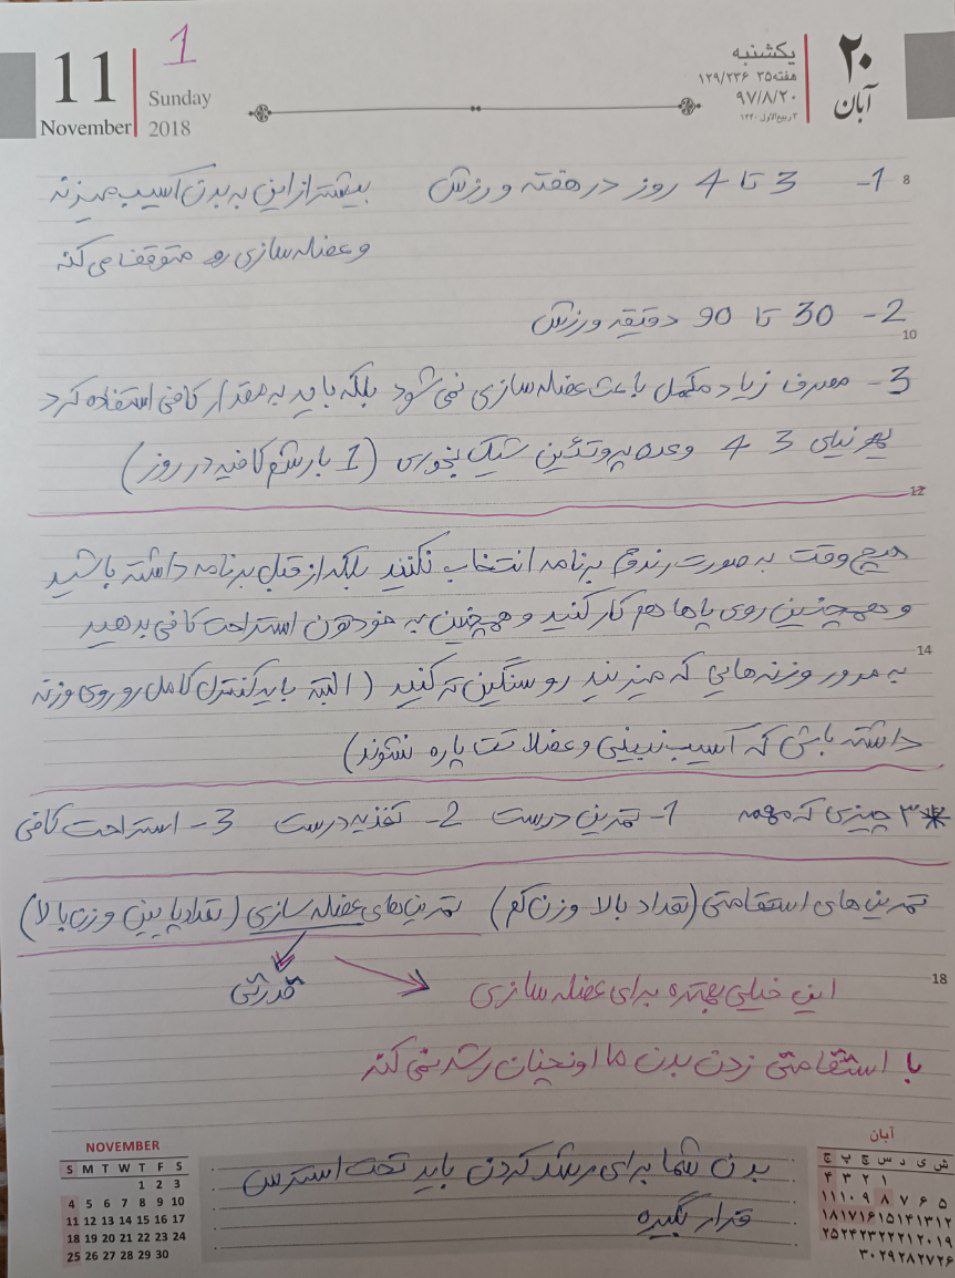 11
November
1
Sunday
2018
یکشنبه
هفته ۳۵ ۱۲۹/۲۳۶
۹۷/۸/۲۰
۳ ربیع‌الاول ۱۴۴۰
۲۰
آبان
8
1- 3 تا 4 روز در هفته ورزش بیشتر از این به بدن آسیب میزنه
و عضله سازی رو متوقف می کنه
2- 30 تا 90 دقیقه ورزش
10
3- مصرف زیاد مکمل باعث عضله سازی نمی شود بلکه باید به مقدار کافی استفاده کرد
نیای 3 4 وعده پروتئین شیک بخوری (1 بارشم کافیه در روز)
12
هیچ وقت به صورت رندم برنامه انتخاب نکنید بلکه از قبل برنامه داشته باشید
و همچنین روی پاها هم کار کنید و همچنین به خودتون استراحت کافی بدهید
14
به مرور وزنه هایی که میزنید رو سنگین تر کنید (البته باید کنترل کامل رو روی وزنه
داشته باشی که آسیب نبینی و عضلاتت پاره نشوند)
* ۳ چیزی که مهمه 1- تمرین درست 2- تغذیه درست 3- استراحت کافی
تمرین های استقامتی (تعداد بالا وزن کم) تمرین های عضله سازی (تعداد پایین وزن بالا)
قدرتی
18
این خیلی بهتره برای عضله سازی
با استقامتی زدن بدن ما اونچنان رشد نمی کنه
بدن شما برای رشد کردن باید تحت استرس
قرار بگیره
NOVEMBER
S M T W T F S
1 2 3
4 5 6 7 8 9 10
11 12 13 14 15 16 17
18 19 20 21 22 23 24
25 26 27 28 29 30
آبان
ش ی د س چ پ ج
۱ ۲ ۳ ۴
۵ ۶ ۷ ۸ ۹ ۱۰ ۱۱
۱۲ ۱۳ ۱۴ ۱۵ ۱۶ ۱۷ ۱۸
۱۹ ۲۰ ۲۱ ۲۲ ۲۳ ۲۴ ۲۵
۲۶ ۲۷ ۲۸ ۲۹ ۳۰